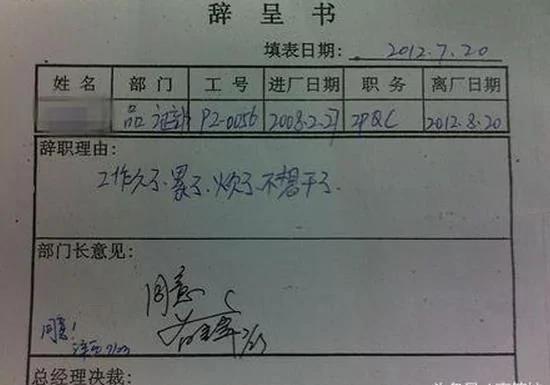 辞呈书
填表日期: 2012.7.20
姓名 部门 工号 进厂日期 职务 离厂日期
品证部 P2-0056 2008.2.27 IPQC 2012.8.20
辞职理由:
工作久了、累了、烦了、不想干了、
部门长意见:
同意
同意!
总经理决裁: